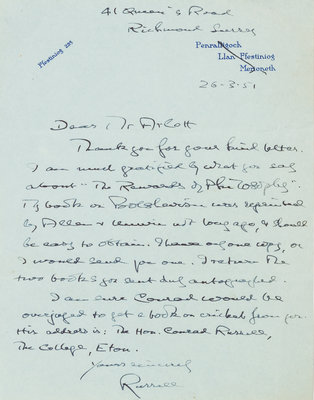 41 Queen's Road
Richmond Surrey
Ffestiniog 295
Penralltgoch
Llan Ffestiniog
Merioneth
26-3-51
Dear Mr Arlott
Thank you for your kind letter.
I am much gratified by what you say
about "The Rewards of Philosophy".
My book on Bolshevism was reprinted
by Allen & Unwin not long ago, & should
be easy to obtain. I have only one copy, or
I would send you one. I return the
two books you sent duly autographed.
I am sure Conrad would be
overjoyed to get a book on cricket from you.
His address is: The Hon. Conrad Russell,
The College, Eton.
Yours sincerely
Russell